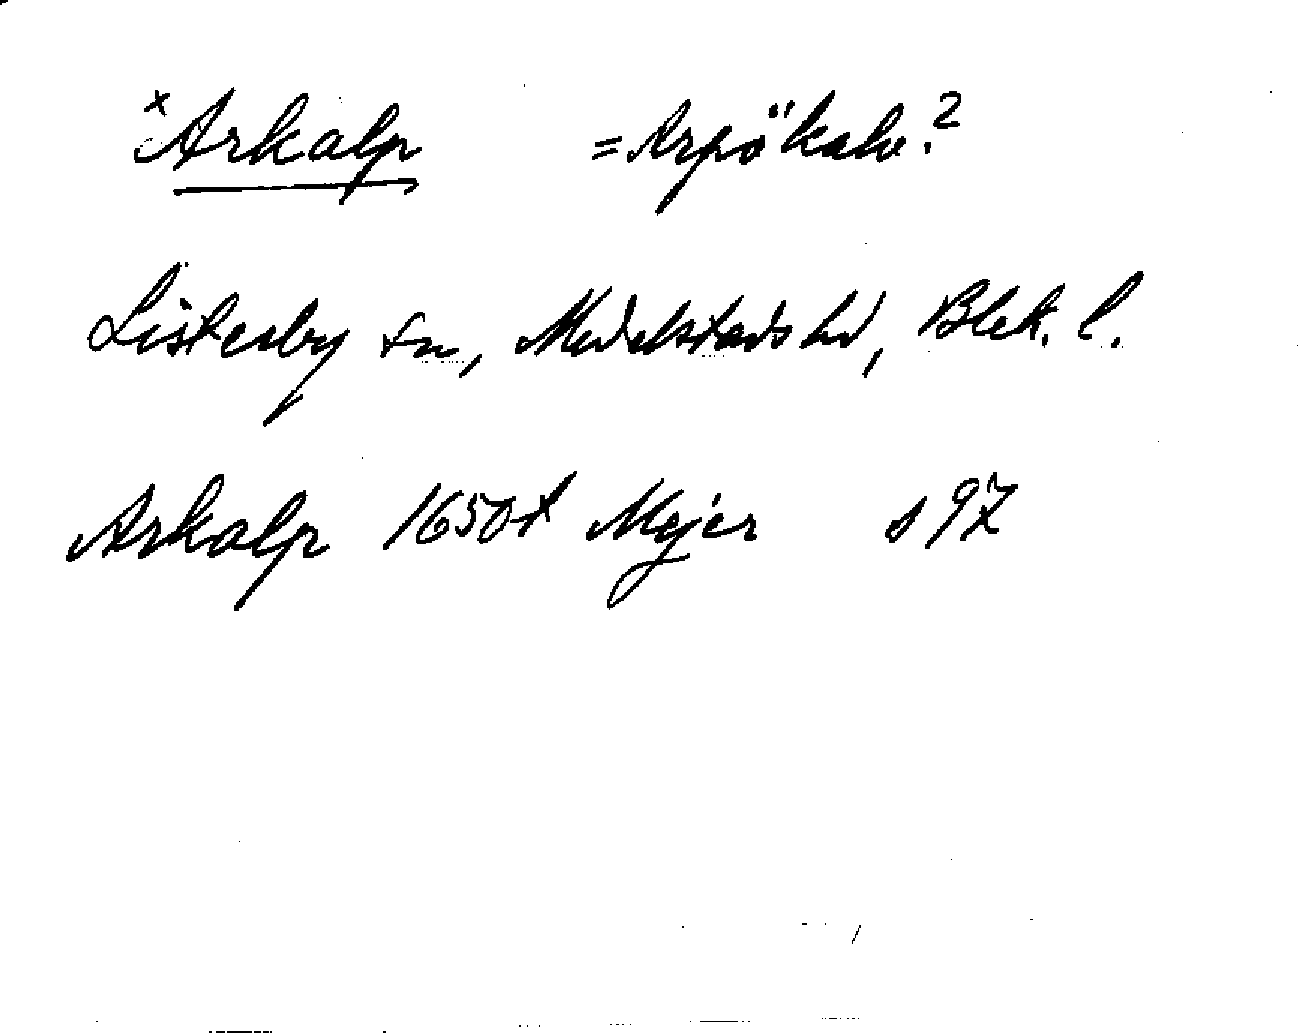 ×Arkalp =Arpökalv.?
Listerby sn, Medelstads hd, Blek. l.
Arkalp 1650t Mejer s 97